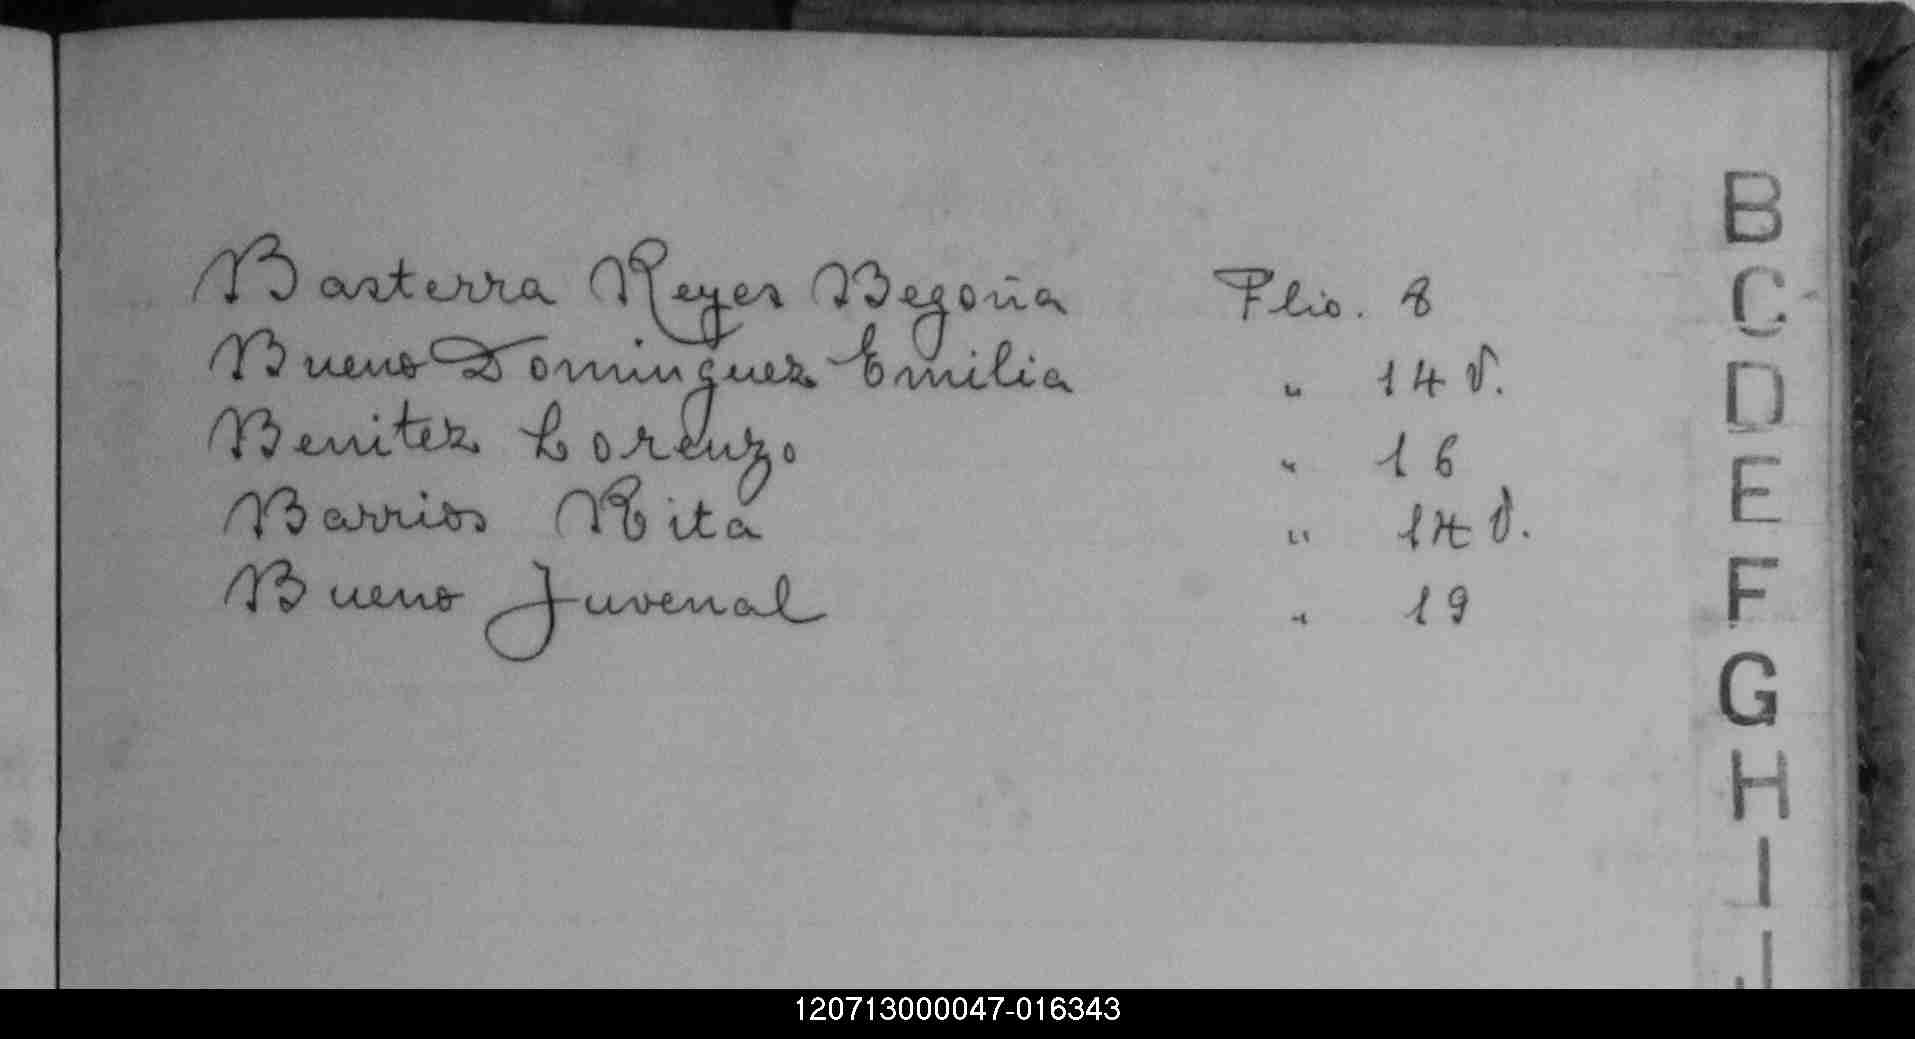 Basterra Reyes Begoña Flio. 8
Bueno Dominguez Emilia " 14 v.
Benitez Lorenzo " 16
Barrios Rita " 14 v.
Bueno Juvenal " 19
B
C
D
E
F
G
H
I
J
120713000047-016343